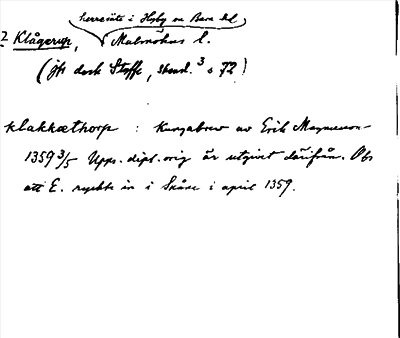 herresäte i Hyby sn Bara hd
? Klågerup, Malmöhus l.
(jfr dock Steffe, Skand.³ s 72)
klakkæthorp : kungabrev av Erik Magnusson
1359 3/5 Upps. dipl. orig är utgivet därifrån. Obs
att E. ryckte in i Skåne i april 1359.